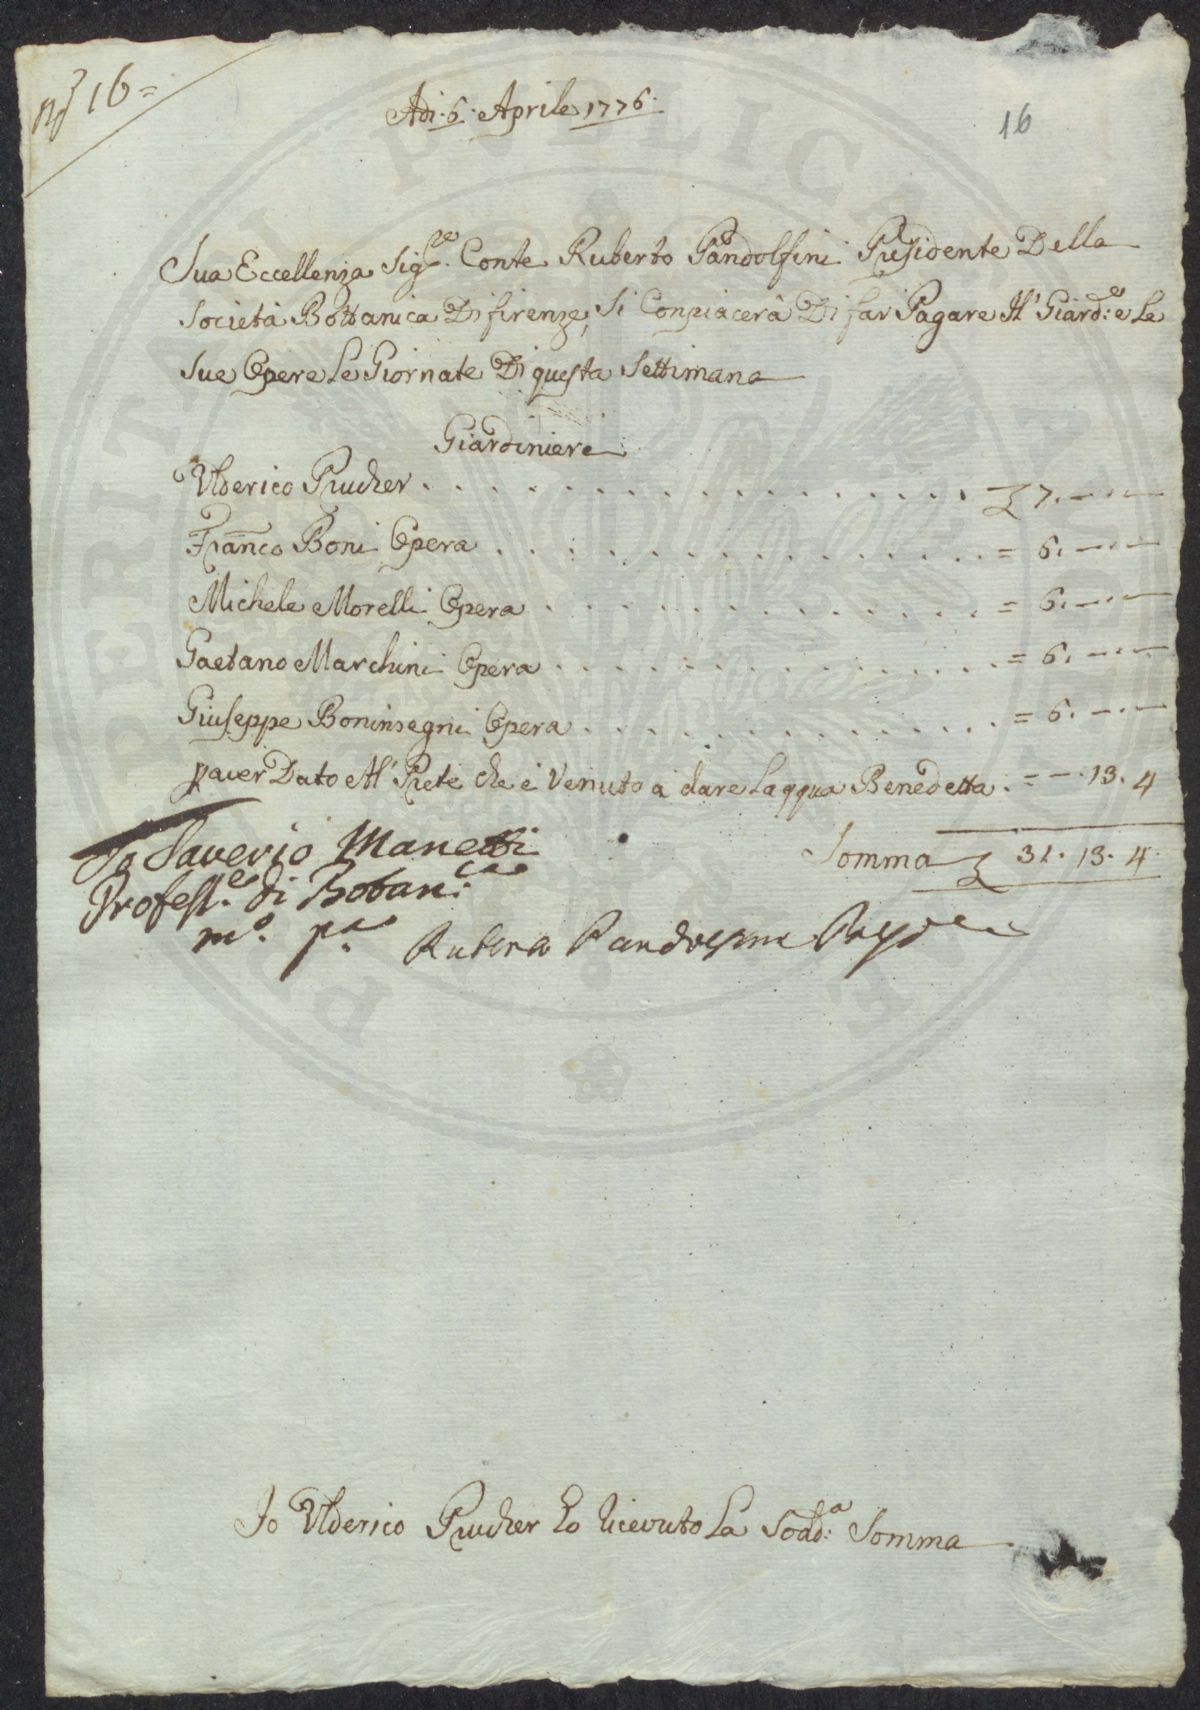 N.º 16=
Adi. 6. Aprile 1776.
16
Sua Eccellenza Sig.re Conte Ruberto Pandolfini Presidente Della
Società Bottanica Di firenze, Si Conpiacerà Di far Pagare Al' Giard.e e Le
Sue Opere Le Giornate Di questa Settimana
Giardiniere
Ulderico Prucher . . . . . . . . . . . . . . . . . . £ 7. — . —
Franco Boni Opera . . . . . . . . . . . . . . . = 6. — . —
Michele Morelli Opera . . . . . . . . . . . . . = 6. — . —
Gaetano Marchini Opera . . . . . . . . . . . . = 6. — . —
Giuseppe Boninsegni Opera . . . . . . . . . . . = 6. — . —
p aver Dato Al' Prete che è Venuto à dare Laqqua Benedetta . = — . 13. 4
Somma £ 31. 13. 4.
Io Saverio Manetti
Profess.e di Botan.ca
m.o p.a
Ruberto Pandolfini
Io Ulderico Prucher ho ricevuto La Sodd.a Somma